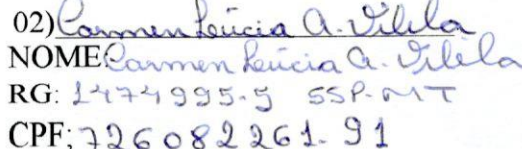 02) Carmen Lúcia A. Vilela
NOME: Carmen Lúcia A. Vilela
RG: 1474995-5 SSP-MT
CPF: 726082261-91